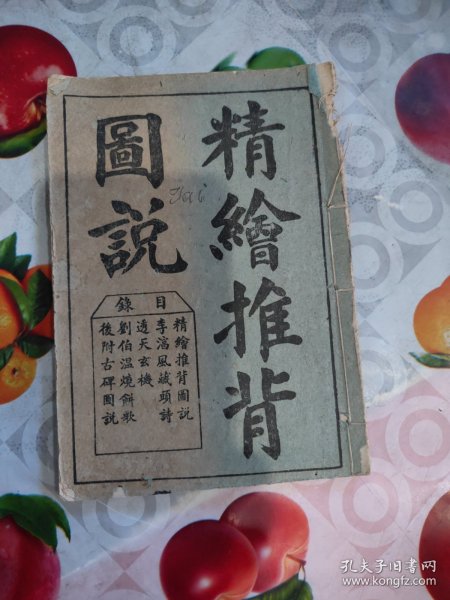 精繪推背
圖說
目錄
精繪推背圖說
李淳風藏頭詩
透天玄機
劉伯溫燒餅歌
後附古碑圖說
孔夫子旧书网
www.kongfz.com